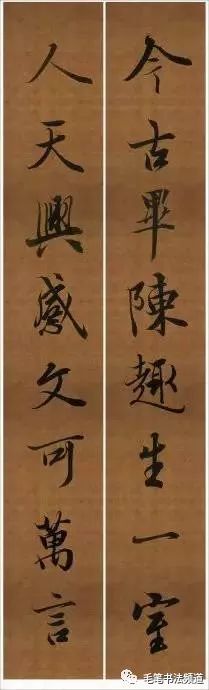 今古畢陳趣生一室
人天興感文可萬言
毛笔书法频道